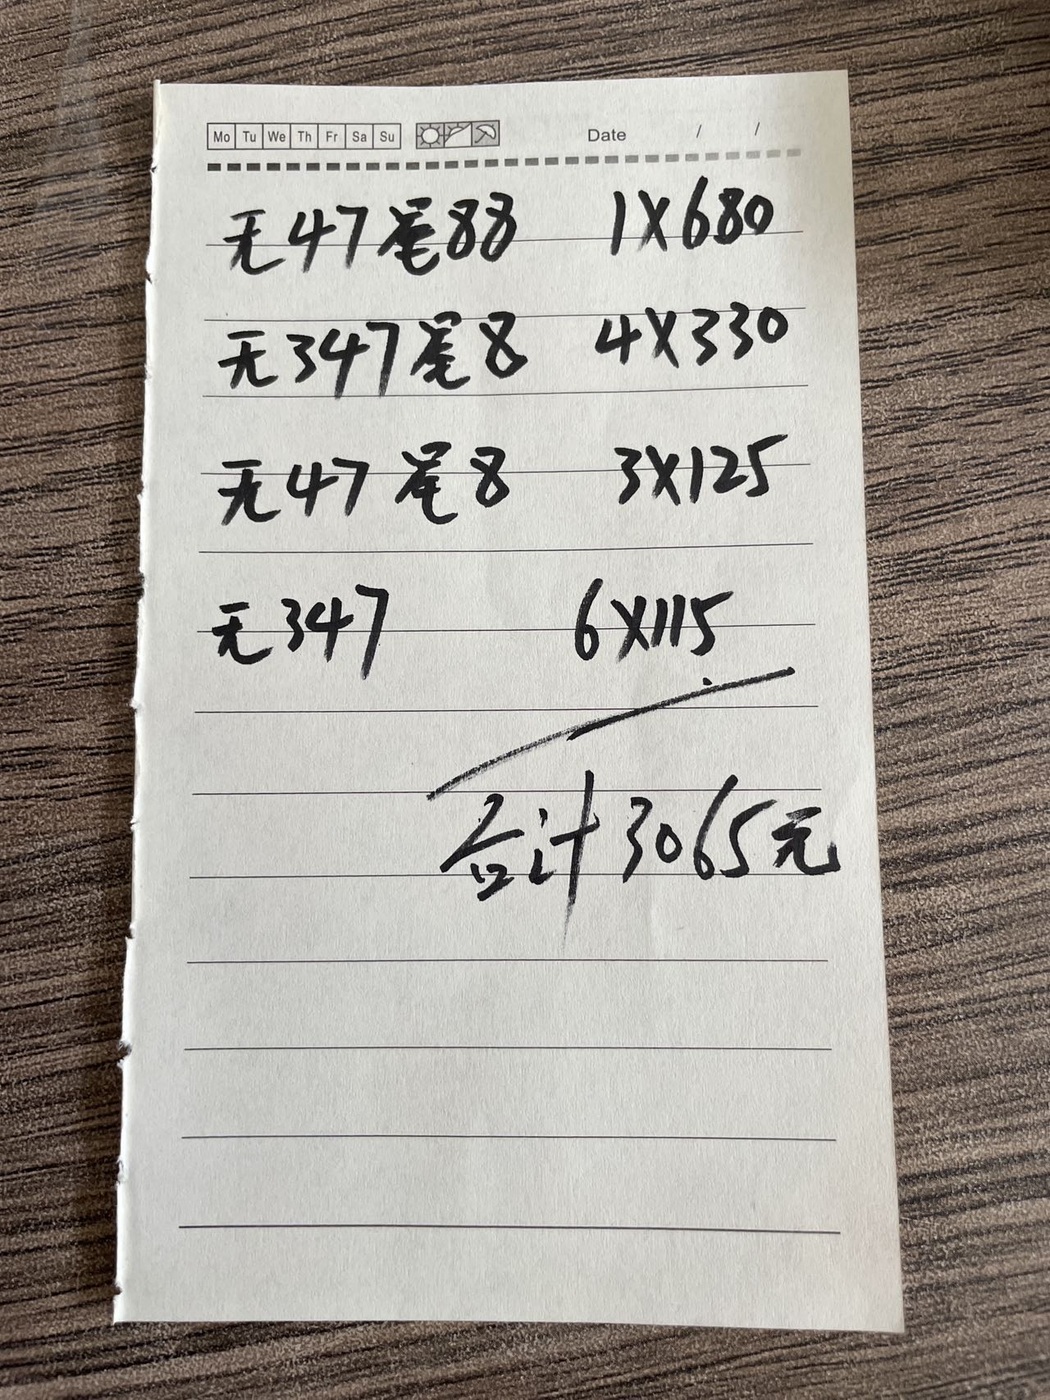 Mo Tu We Th Fr Sa Su Date / /
无47尾88 1X680
无347尾8 4X330
无47尾8 3X125
无347 6X115
合计3065元